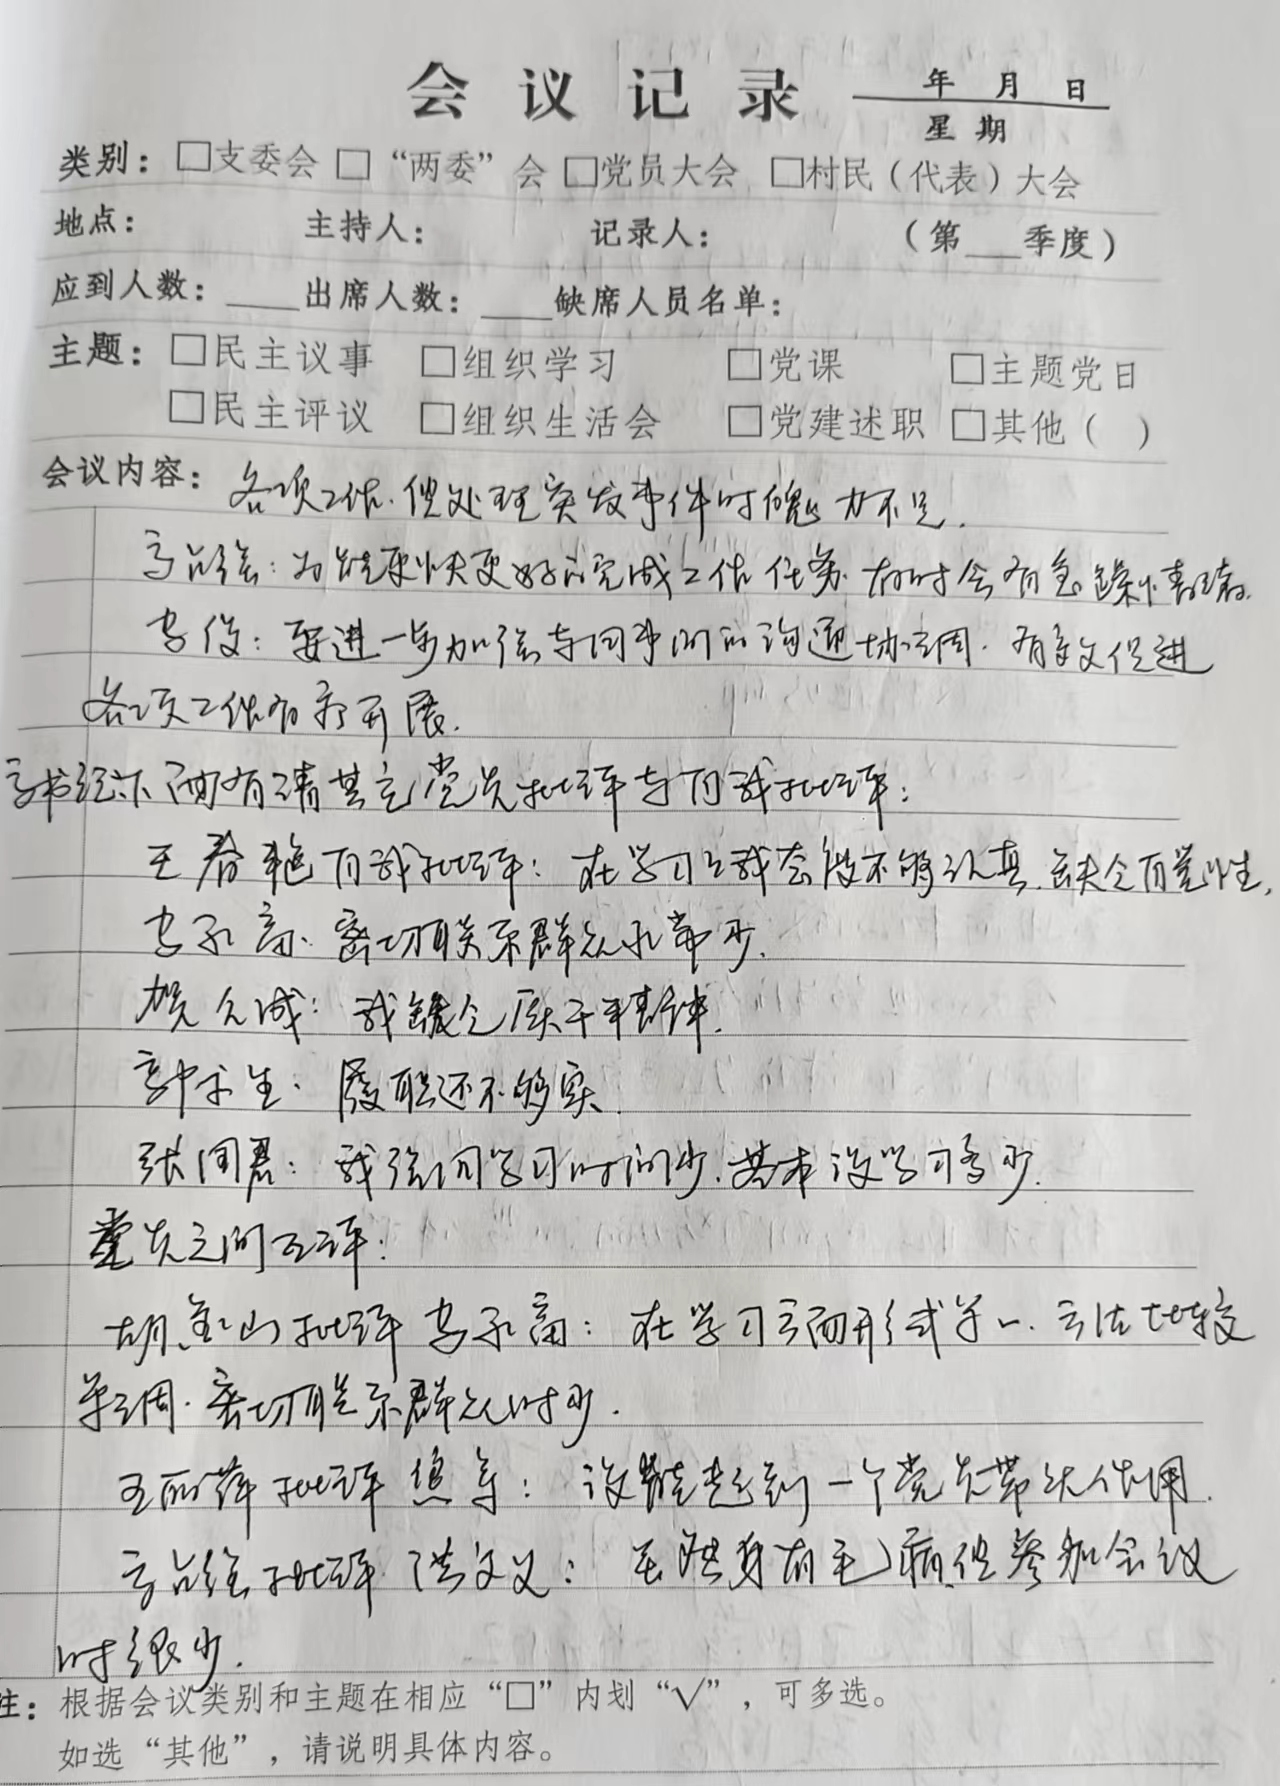 会议记录
年 月 日
星期
类别：□支委会 □“两委”会 □党员大会 □村民（代表）大会
地点： 主持人： 记录人： （第___季度）
应到人数：____出席人数：____缺席人员名单：
主题：□民主议事 □组织学习 □党课 □主题党日
□民主评议 □组织生活会 □党建述职 □其他（ ）
会议内容：各项工作.但处理突发事件时魄力不足.
为能更快更好的完成工作任务.有时会有急躁情绪.
李俊：要进一步加强与同事间的沟通协调.有效促进
各项工作有序开展.
下面有请其它党员批评与自我批评：
王春艳自我批评：在学习上我会议不够认真.缺乏自觉性,
李永高.密切联系群众非常少.
贺久成：我缺乏实干精神.
生.履职还不够实.
张国君：我强调学习时间少.基本没学习多少.
党员之间互评：
胡金山批评李永高：在学习方面形式单一.方法比较
单调.密切联系群众时少.
王丽萍批评焦军：没能起到一个党员带头作用.
批评洪文义：虽然身有毛病,但参加会议
时很少.
注：根据会议类别和主题在相应“□”内划“√”，可多选。
如选“其他”，请说明具体内容。